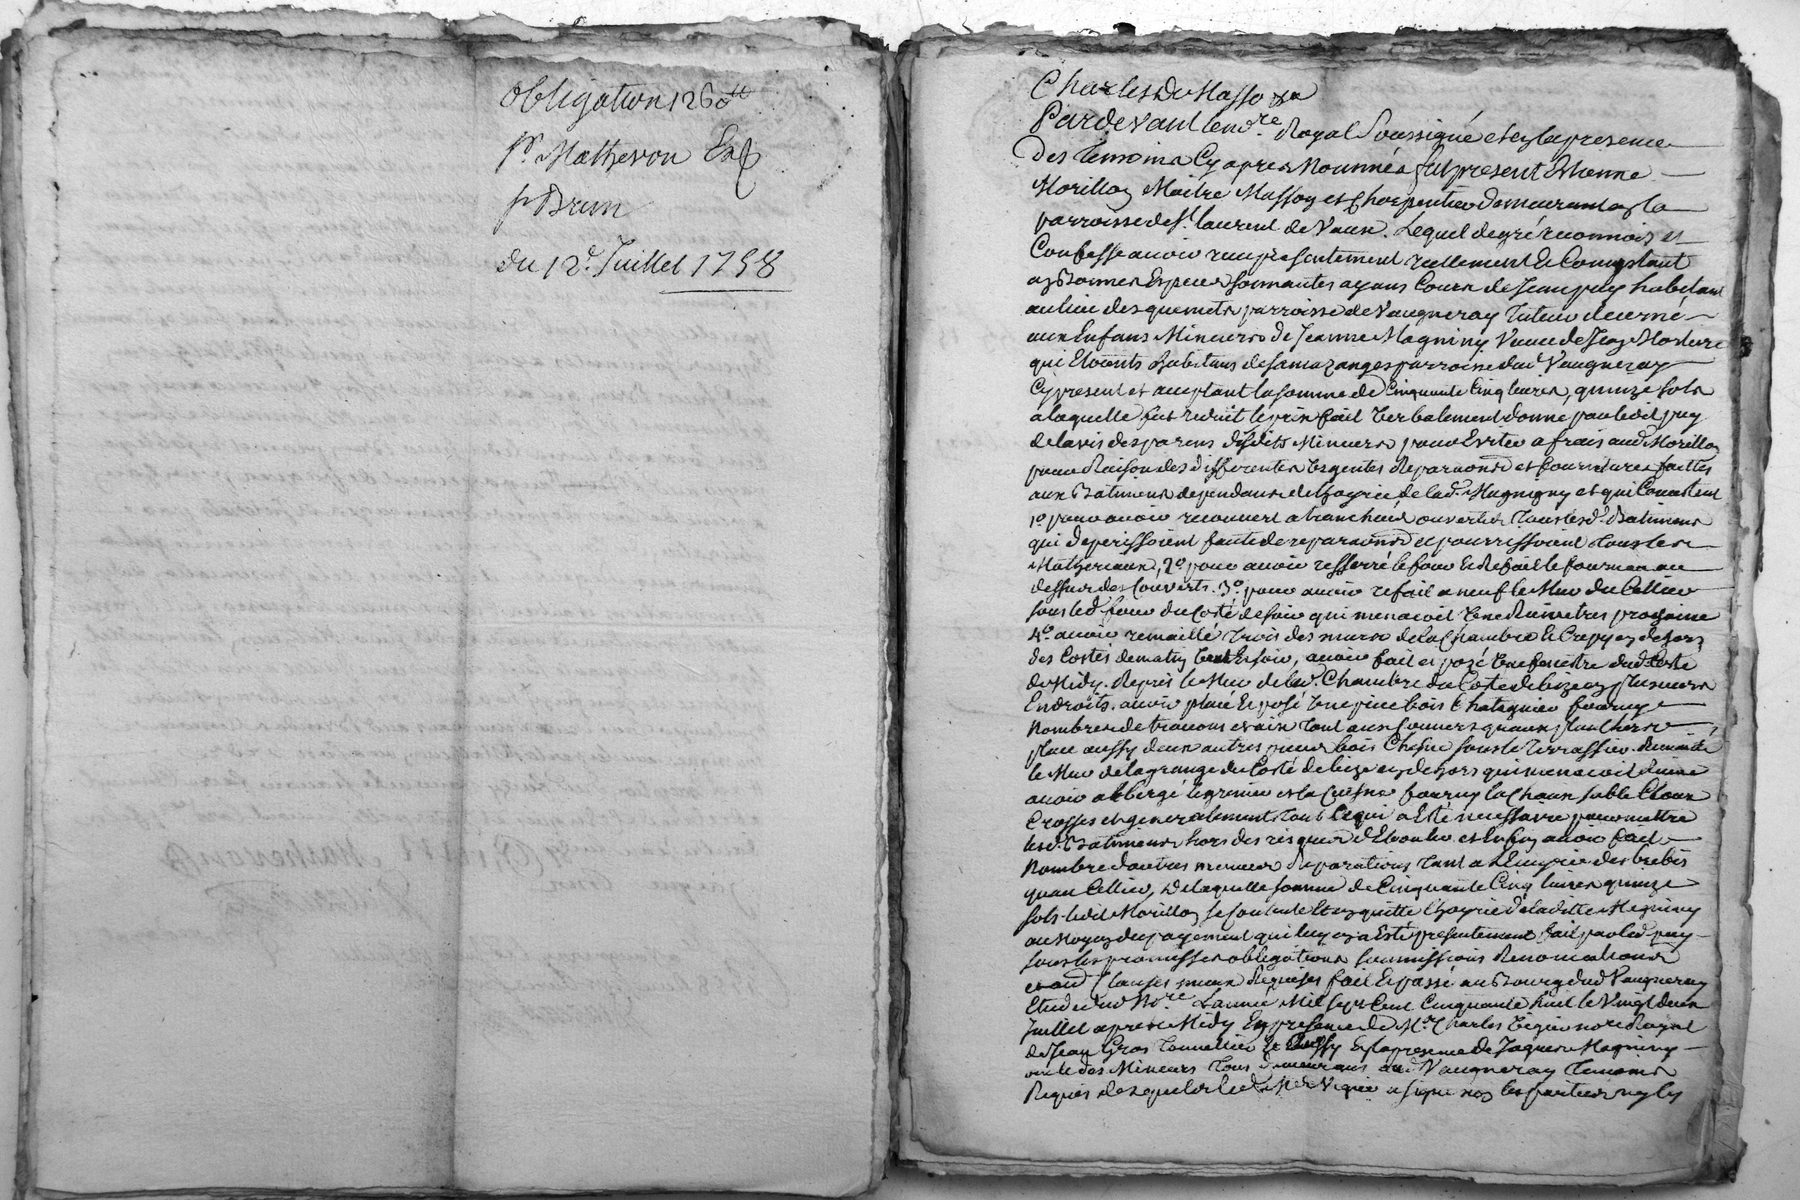 obligation 126<sup>lt</sup>
p<sup>r</sup> Mathevon
p<sup>r</sup> Brun
du 12<sup>e</sup>. Juillet 1758
Pardevant le no<sup>re</sup> Royal Soussigné et en la presence
des Temoins Cy apres Nommés fut present Etienne
Morillon Maitre Masson et Charpentier demeurant en la
parroisse de S<sup>t</sup> laurent de Vaux. Lequel de gré reconnois et
Confesse avoir reçu presentement reellement et Comptant
en Bonnes Especes sonnantes ayans Cours de Jean puy habitant
au lieu des parroisse de Vaugneray Tuteur decerné
aux Enfans Mineurs de Jeanne Magniny Veuve de
qui Etoient habitans de parroisse dud Vaugneray
Cy present et acceptant la somme de Cinquante Cinq livres, quinze sols
a laquelle fut reduit le prix fait Verbalement donné par ledit puy
de lavis des parens desdits Mineurs pour Eviter a frais aud Morillon
pour Raison des differentes Urgentes Reparaons et fournitures faittes
aux Batimens dependans de lhoyrie de lad. Magniny et qui Consistent
1.<sup>o</sup> pour avoir recouvert a tranchée ouverte Tous lesd. Batimens
qui deperissoient faute de reparaons et pourrissoient Tous les
Matheriaux, 2.<sup>o</sup> pour avoir resserré le four et Refait le fourneau au
dessus des Couverts. 3.<sup>o</sup> pour avoir refait a neuf le Mur du Cellier
sous led. four du Costé de soir qui menacoit Une Ruine tres prochaine
4.<sup>o</sup> avoir remaillé Trois des murs de la Chambre et Crepy en dehors
des Costés de matin et soir, avoir fait et posé Une fenestre dud Costé
de Midy. Repris le Mur de lad. Chambre du Costé de bize en plusieurs
Endroits. avoir placé et posé Une piece bois Chataignier fourny
Nombre de travons et aix Tant aux Couverts quaux planchers
place aussy deux autres pieces bois Chesne sous le Terrassier. Remaillé
le Mur de la grange du Costé de bize en dehors qui menacoit Ruine
avoir abbergé le grenier et la Cuisine fourny la Chaux sable Cloux
Crosses et generalement Tout Ce qui a Eté necessaire pour mettre
lesd. Batimens hors des risques d'Eboulir et Enfin avoir fait
Nombre dautres menues Reparations Tant a L'Ecurie des brebis
quau Cellier, De laquelle somme de Cinquante Cinq livres quinze
sols ledit Morillon se Contente Et en quitte lhoyrie de laditte Magniny
au Moyen du payement qui luy en a Esté presentement fait par led puy
sous les promesses obligations soumissions Renonciations
et aud. Clauses mieux Requises fait et passé au Bourg dud Vaugneray
Etude dud No<sup>re</sup> Lannée Mil sept Cent Cinquante huit le Vingt deux
Juillet apres Midy En presence de M<sup>e</sup> Charles Viguier no<sup>re</sup> Royal
de Jean Gros Tonnellier Et aussy En la presence de Jaques Magniny
oncle des Mineurs Tous demeurans aud Vaugneray Temoins
Requis desquels led M<sup>e</sup> Viguier a signé non les parties ny les